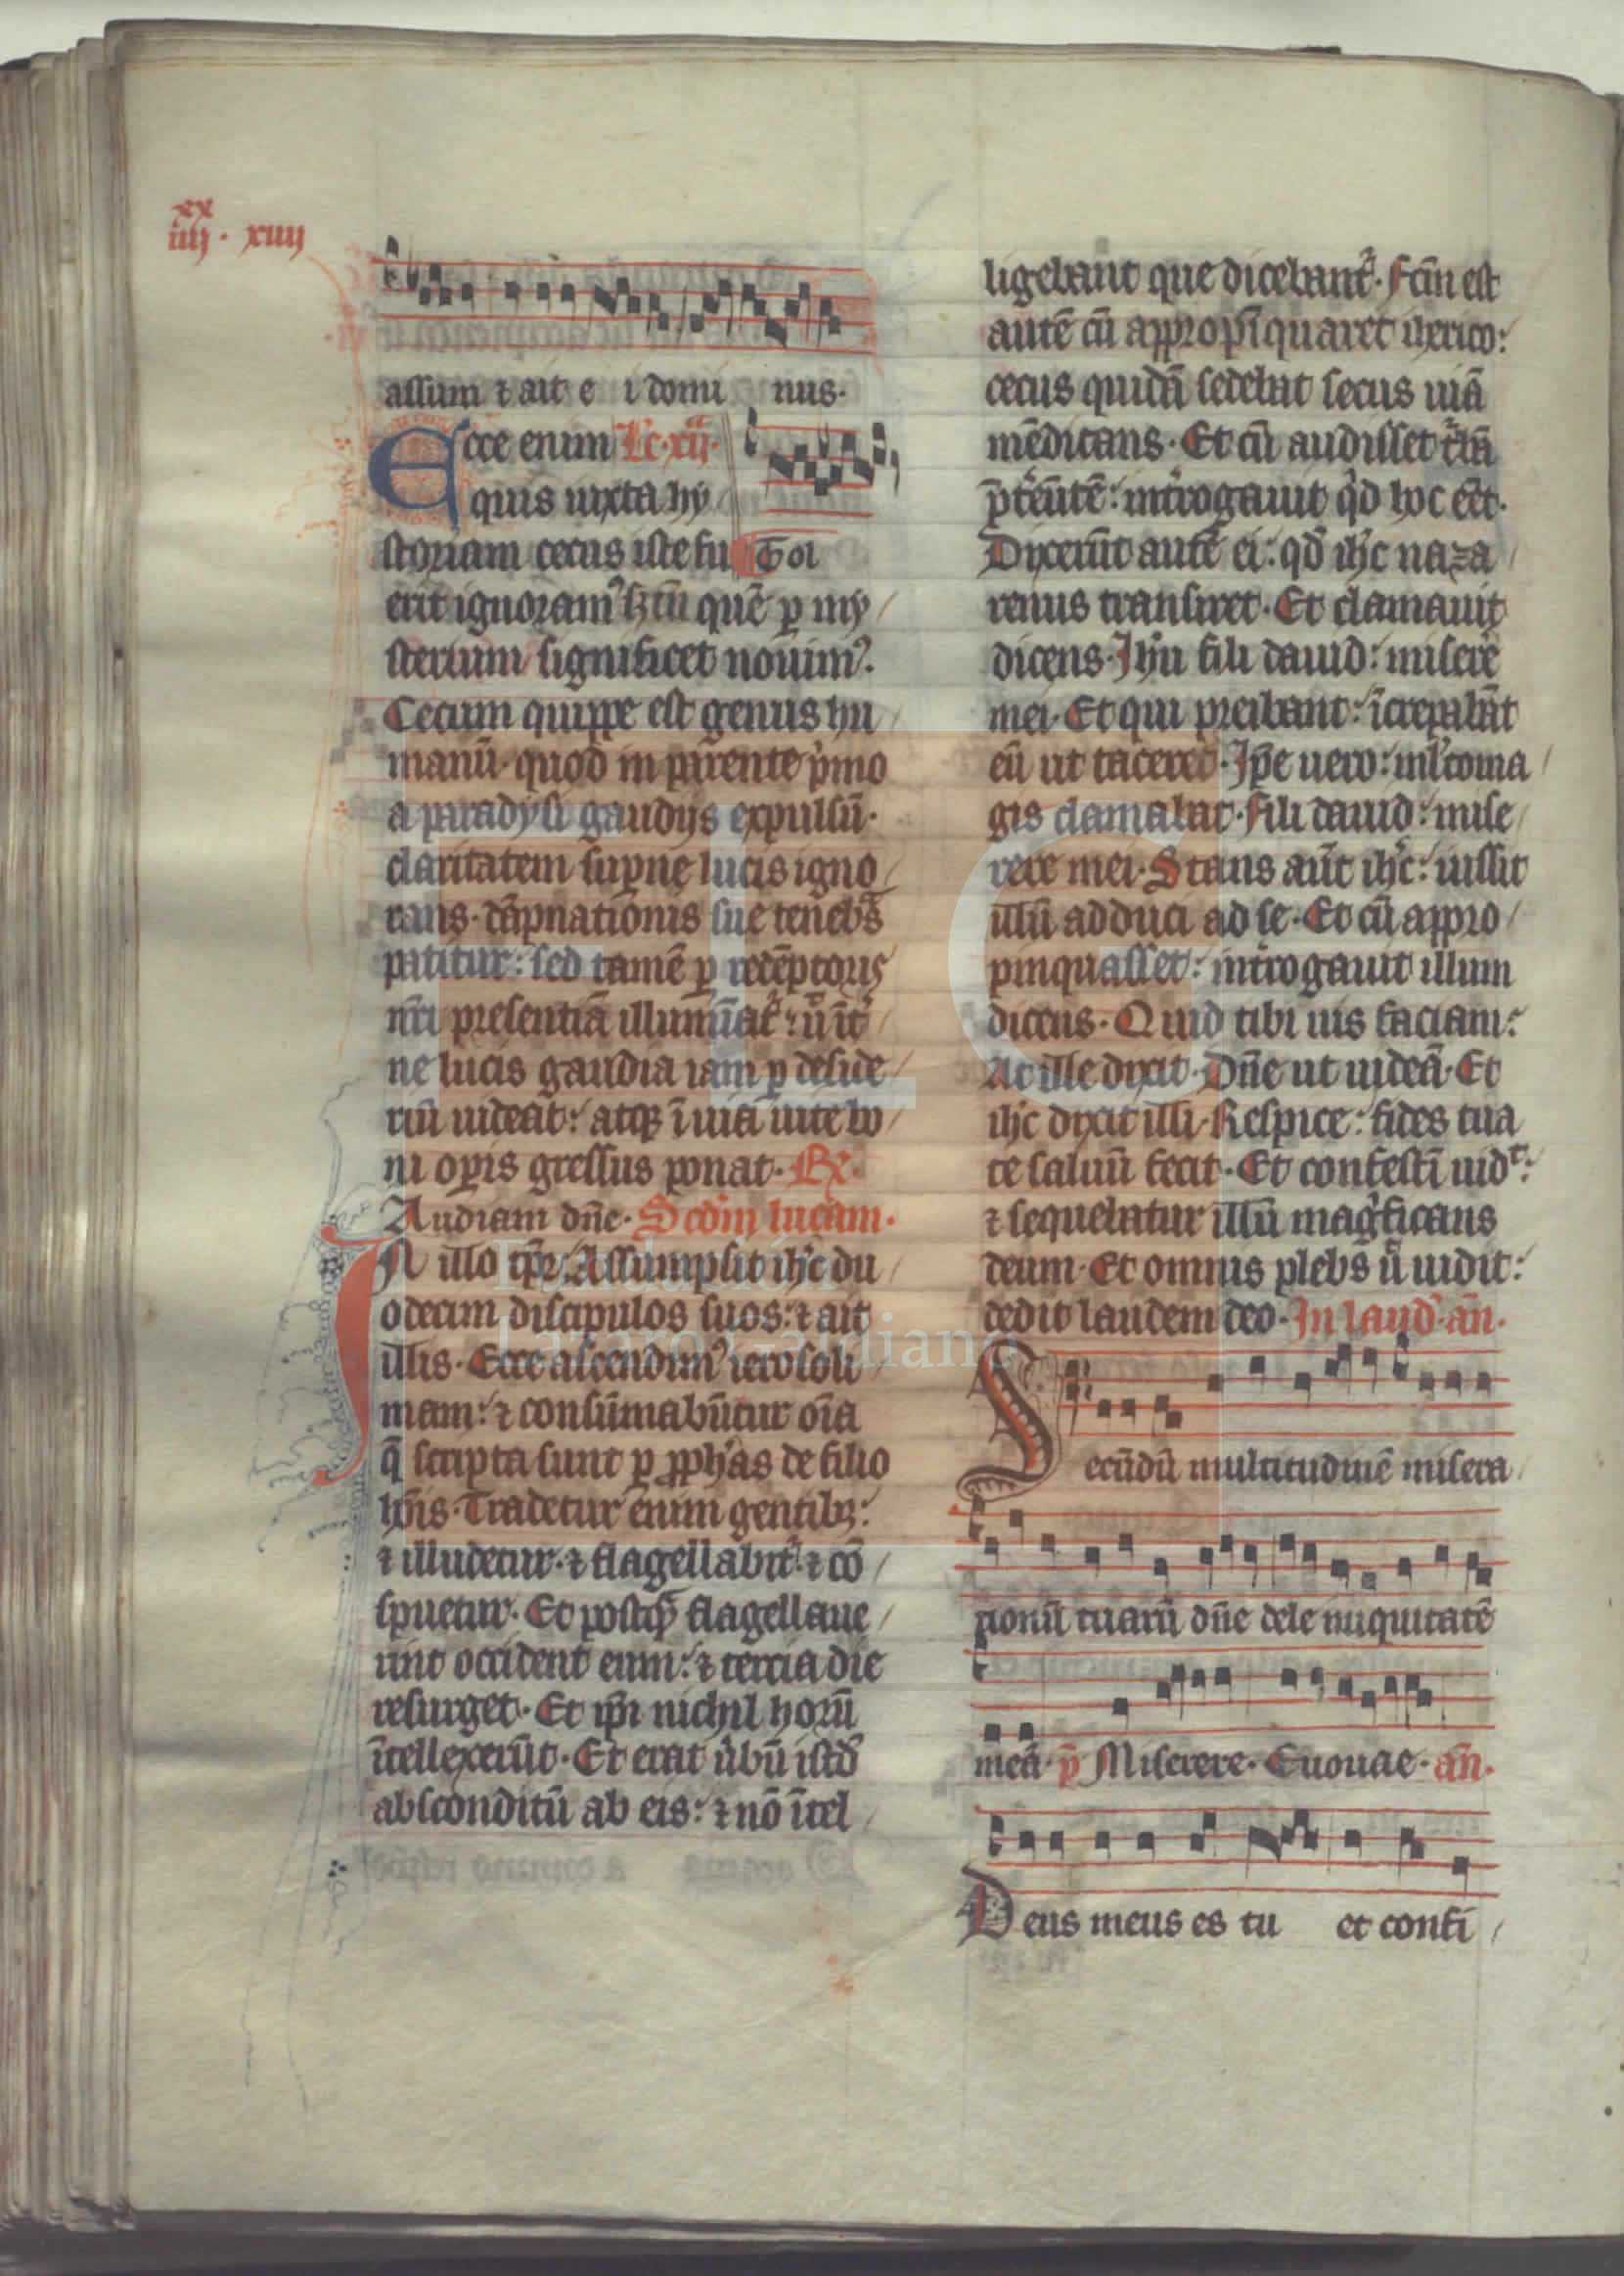 xx
iiij. xiiij
assum ⁊ ait e i domi nus.
Ecce enim Lc. xij.
quis iuxta hy
storiam cecus iste fu Tol
erit ignoram⁹ sȝ tn̄ quē ꝑ my
sterium significet nouim⁹.
Cecum quippe est genus hu
manū. quod in parente p̍mo
a paradysi gaudijs expulsū.
claritatem supne lucis igno
rans. dāpnationis sue tenebᵃs
patitur: sed tamē ꝑ redēptoris
nr̄i presentiā illumīat᷑: ut īt᷑
ne lucis gaudia iam ꝑ deside
riū uideat: atqꝫ ī uia uite bo
ni oꝑis gressus ponat. R℣.
Audiam dn̄e. Scd̄m lucam.
IN illo tp̄r. Assumpsit ihc̄ du
odecim discipulos suos: ⁊ ait
illis. Ecce ascendim⁹ ierosoli
mam: ⁊ consūmabūtur oīa
q̄ scripta sunt ꝑ ꝓph̄as de filio
hoīs. Tradetur enim gentibꝫ:
⁊ illudetur. ⁊ flagellabit᷑. ⁊ cō
spuetur. Et postq̄ flagellaue
rint occident eum: ⁊ tercia die
resurget. Et ip̄i nichil horū
ītellexerūt. Et erat ūbū istd̄
absconditū ab eis: ⁊ nō ītel
ligebant que dicebant᷑. Fc̄m est
autē cū appropīquaret iherico:
cecus quidā sedebat secus uiā
mēdicans. Et cū audisset t᷑bā
p̄t᷑eūtē: int᷑rogauit q̍d hoc eēt.
Dixerūt autē ei: qd̄ ihc̄ naza
renus transiret. Et clamauit
dicens. Ihū fili dauid: miserē
mei. Et qui preibant: īcrepabāt
eū ut taceret. Ip̄e uero: ml̄to ma
gis clamabat. Fili dauid: mise
rere mei. Stans aūt ihc̄: iussit
illū adduci ad se. Et cū appro
pinquasset: int᷑rogauit illum
dicens. Quid tibi uis faciam:
At ille dixit. Dn̄e ut uideā. Et
ihc̄ dixit illi. Respice: fides tua
te saluū fecit. Et confestī uid̄t:
⁊ sequebatur illū mag̍ficans
deum. Et omnis plebs ut uidit:
dedit laudem deo. In laud̍. an̄.
Secūdū multitudinē misera
tionū tuarū dn̄e dele iniquitatē
meā. p̄ Miserere. Euouae. an̄.
Deus meus es tu et confi